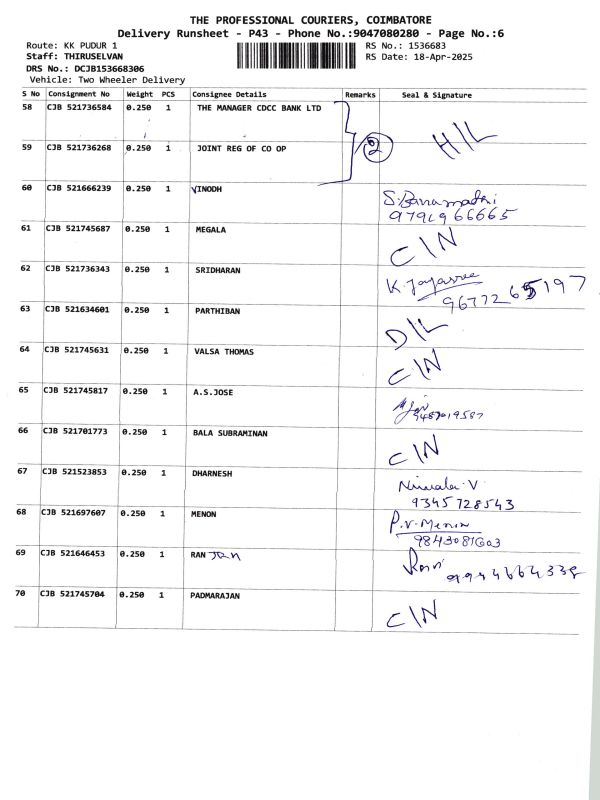 THE PROFESSIONAL COURIERS, COIMBATORE
Delivery Runsheet - P43 - Phone No.:9047080280 - Page No.:6
Route: KK PUDUR 1 RS No.: 1536683
Staff: THIRUSELVAN RS Date: 18-Apr-2025
DRS No.: DCJB153668306
Vehicle: Two Wheeler Delivery
S No Consignment No Weight PCS Consignee Details Remarks Seal & Signature
58 CJB 521736584 0.250 1 THE MANAGER CDCC BANK LTD
2 H/L
59 CJB 521736268 0.250 1 JOINT REG OF CO OP
60 CJB 521666239 0.250 1 VINODH
61 CJB 521745687 0.250 1 MEGALA C/N
62 CJB 521736343 0.250 1 SRIDHARAN K. Jayasree
63 CJB 521634601 0.250 1 PARTHIBAN D/L
64 CJB 521745631 0.250 1 VALSA THOMAS C/N
65 CJB 521745817 0.250 1 A.S.JOSE
66 CJB 521701773 0.250 1 BALA SUBRAMINAN C/N
67 CJB 521523853 0.250 1 DHARNESH Nirmala V
9345728543
68 CJB 521697607 0.250 1 MENON P.V. Menon
69 CJB 521646453 0.250 1 RAN
70 CJB 521745704 0.250 1 PADMARAJAN C/N